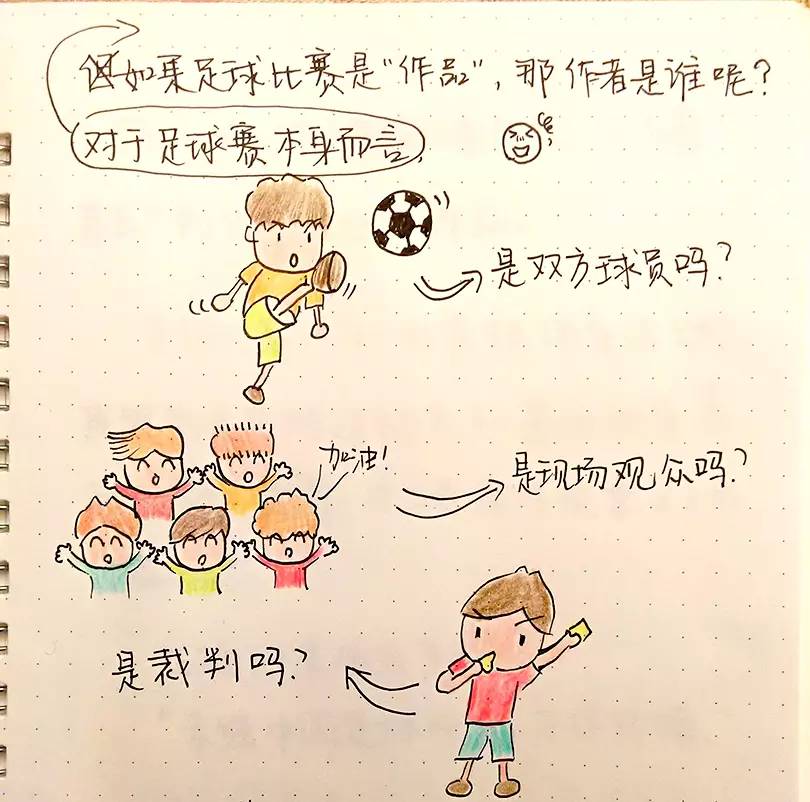 如果足球比赛是“作品”，那作者是谁呢？
对于足球赛本身而言，
是双方球员吗？
加油！
是现场观众吗？
是裁判吗？